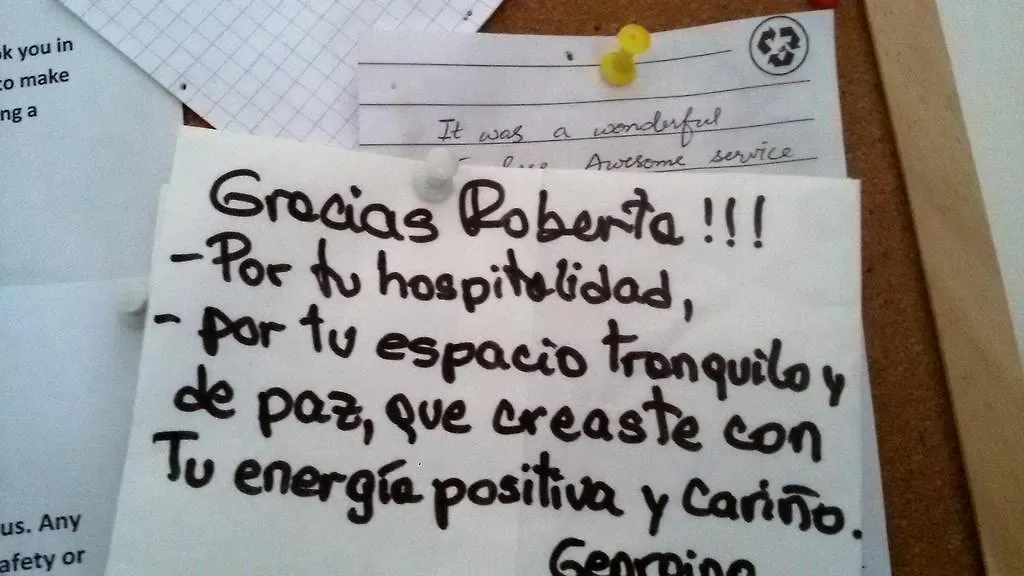 k you in
to make
ng a
It was a wonderful
Awesome service
Gracias Roberta!!!
- Por tu hospitalidad,
- por tu espacio tranquilo y
de paz, que creaste con
Tu energía positiva y cariño.
Georgina
us. Any
afety or